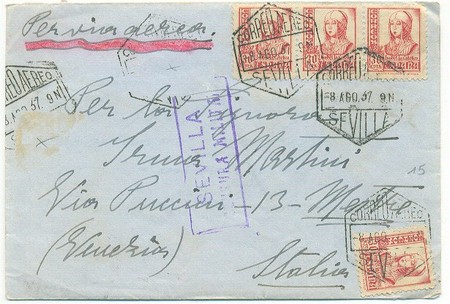 Per via aerea.
CORREO AEREO
-8 AGO. 37 9 M
SEVILLA
30
30
CORREO AEREO
-8 AGO. 37 9 M
SEVILLA
CORREO AEREO
-8 AGO. 37 9 M
Per la Signora
Irma Martini
Via Puccini-13-Mestre
(Venezia)
Italia
SEVILLA
MILITAR
15
CORREO AEREO
-8 AGO.
SEVILLA